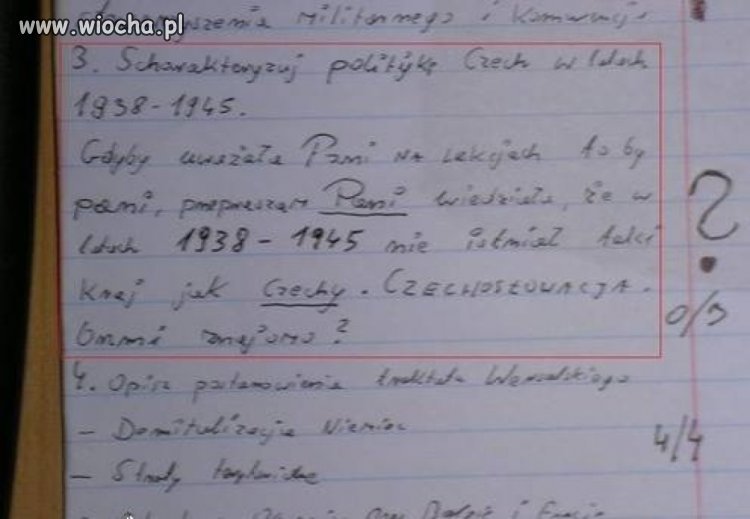 www.wiocha.pl
militarnego i komunikacji
3. Scharakteryzuj politykę Czech w latach
1938-1945.
Gdyby uważała Pani na lekcjach to by
pani, przepraszam Pani wiedziała, że w
latach 1938-1945 nie istniał taki
kraj jak Czechy. CZECHOSŁOWACJA.
Brzmi znajomo?
?
0/3
4. Opisz postanowienia traktatu Wersalskiego
- Demitalizacja Niemiec
4/4
- Straty
i